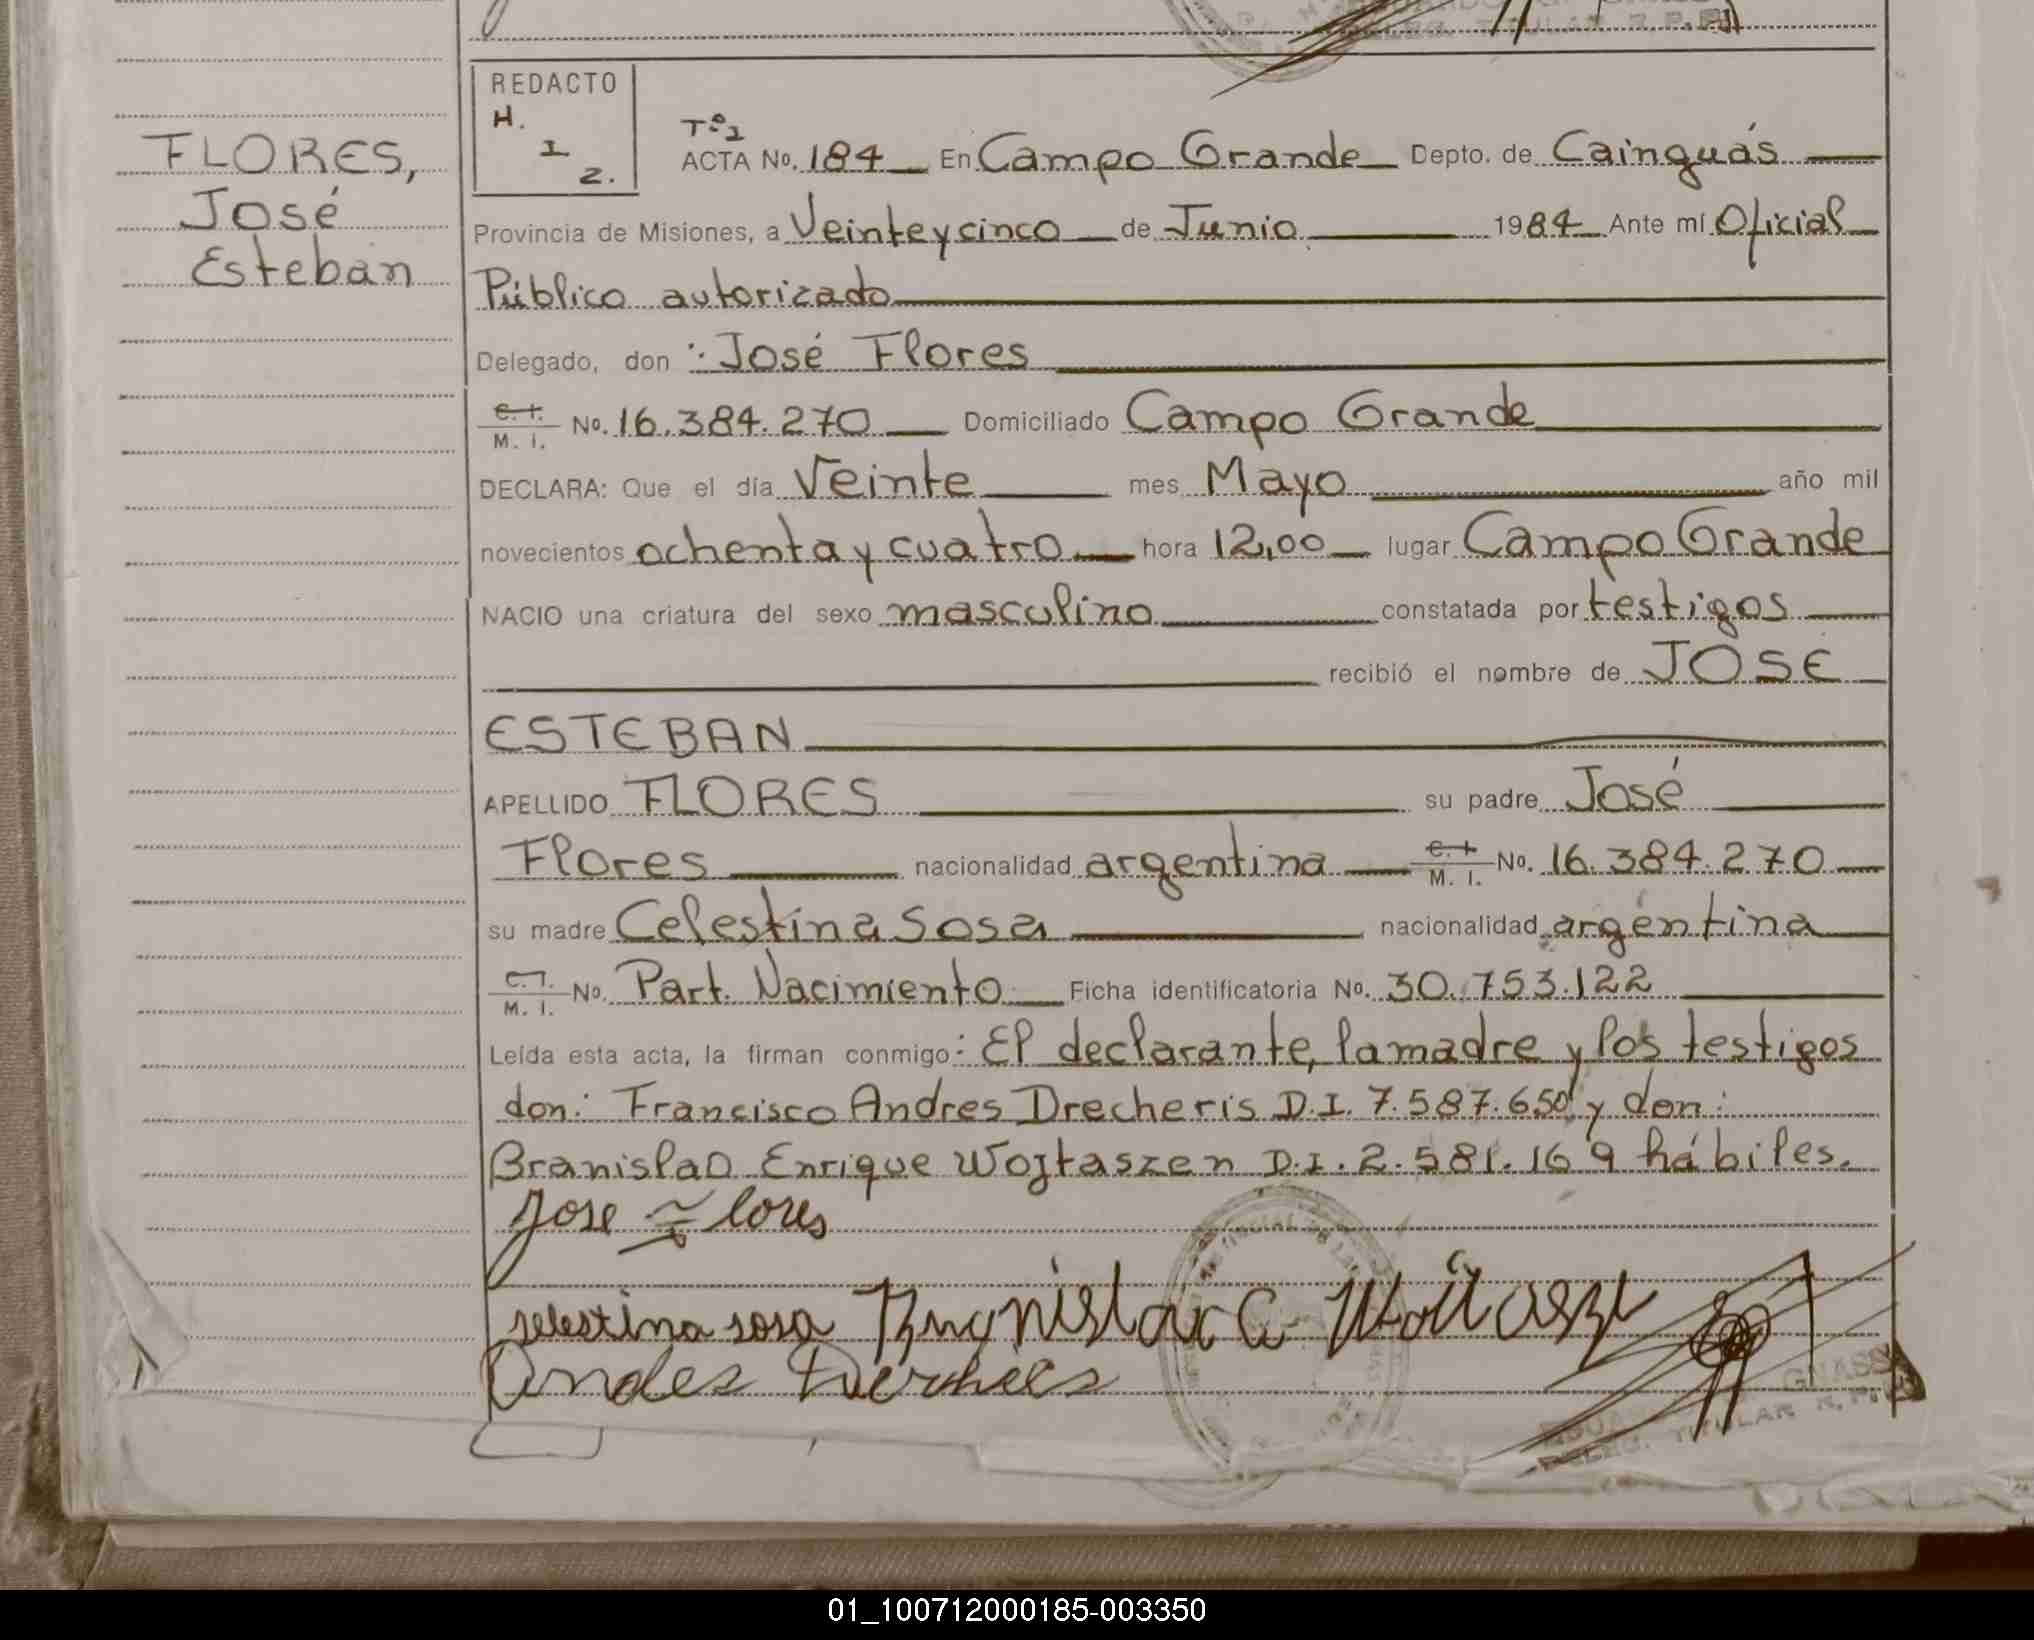 DELEG. TITULAR R.P.
REDACTO
H.
I
Z.
FLORES,
José
Esteban
Tº1
ACTA No. 184 En Campo Grande Depto. de Cainguás
Provincia de Misiones, a Veinte y cinco de Junio 1984 Ante mí Oficial
Público autorizado
Delegado, don : José Flores
C. I. M. I. No. 16.384.270 Domiciliado Campo Grande
DECLARA: Que el día Veinte mes Mayo año mil
novecientos ochenta y cuatro hora 12,00 lugar Campo Grande
NACIO una criatura del sexo masculino constatada por testigos
recibió el nombre de JOSE
ESTEBAN
APELLIDO FLORES su padre José
Flores nacionalidad argentina C. I. M. I. No. 16.384.270
su madre Celestina Sosa nacionalidad argentina
C. I. M. I. No. Part. Nacimiento Ficha identificatoria No. 30.753.122
Leída esta acta, la firman conmigo: El declarante, la madre y los testigos
don: Francisco Andres Drecheris D.I. 7.587.650 y don:
Branislao Enrique Wojtaszen D.I. 2.581.169 hábiles.
Jose Flores
selestina sosa
GNASS
DELEG. TITULAR R.P.
01_100712000185-003350